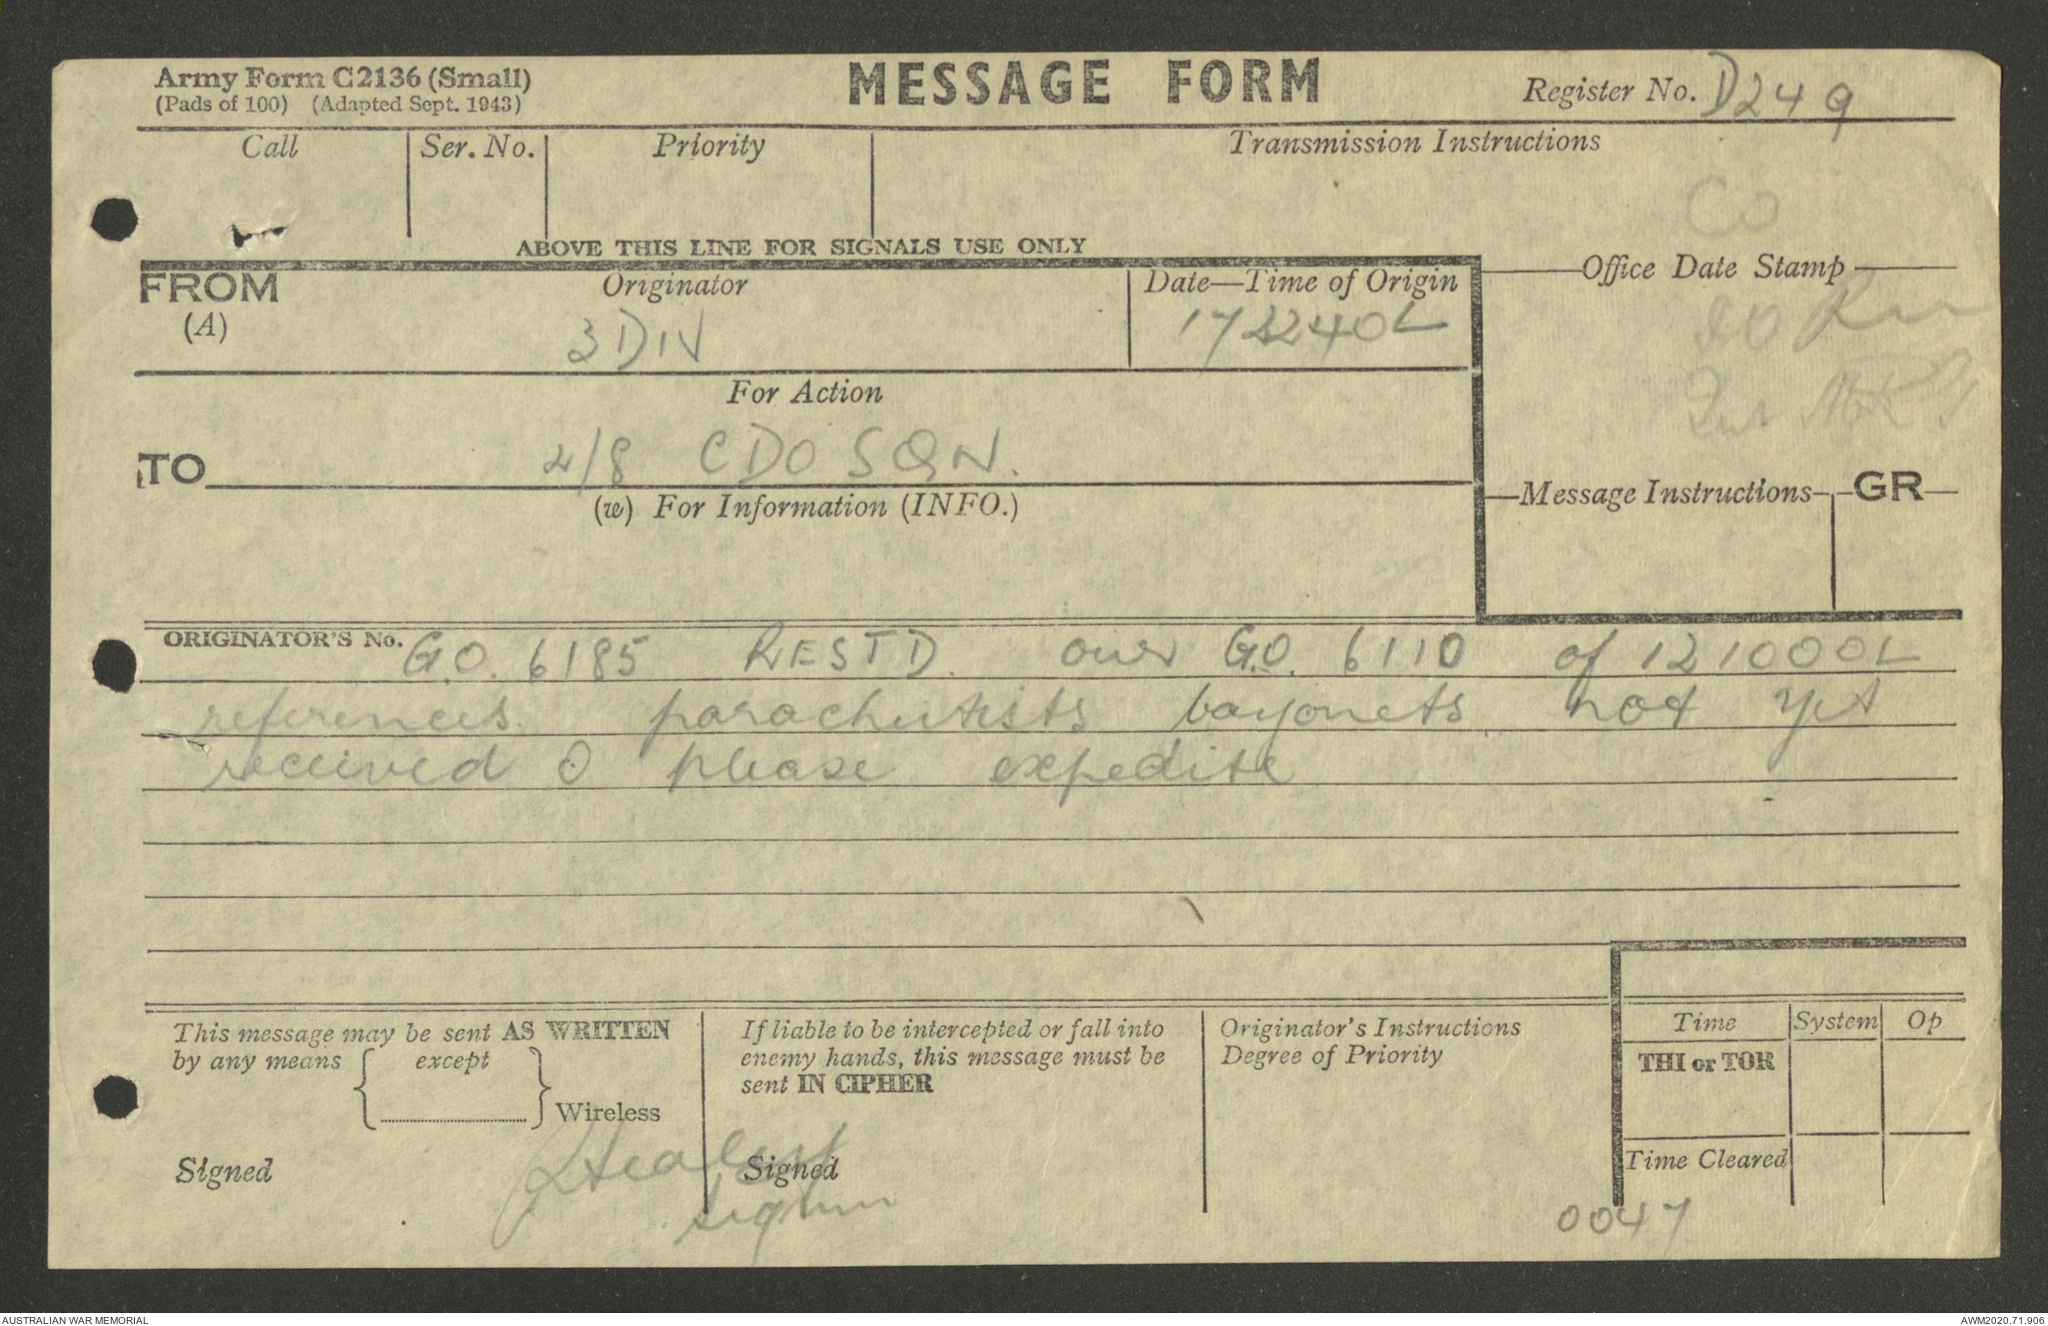 Army Form C2136 (Small)
(Pads of 100) (Adapted Sept. 1943)
MESSAGE FORM
Register No. D249
Call
Ser. No.
Priority
Transmission Instructions
CO
ABOVE THIS LINE FOR SIGNALS USE ONLY
FROM
(A)
Originator
3 DIV
Date—Time of Origin
172240L
Office Date Stamp
For Action
TO
2/8 CDO SQN.
(w) For Information (INFO.)
Message Instructions
GR
ORIGINATOR'S No. G.O. 6185 RESTD. our G.O. 6110 of 121000L
references parachutists bayonets not yet
received O please expedite
This message may be sent AS WRITTEN
by any means except
Wireless
Signed
If liable to be intercepted or fall into
enemy hands, this message must be
sent IN CIPHER
Signed
Healey
sigmn
Originator's Instructions
Degree of Priority
Time
System
Op
THI or TOR
Time Cleared
0047
AUSTRALIAN WAR MEMORIAL
AWM2020.71.906